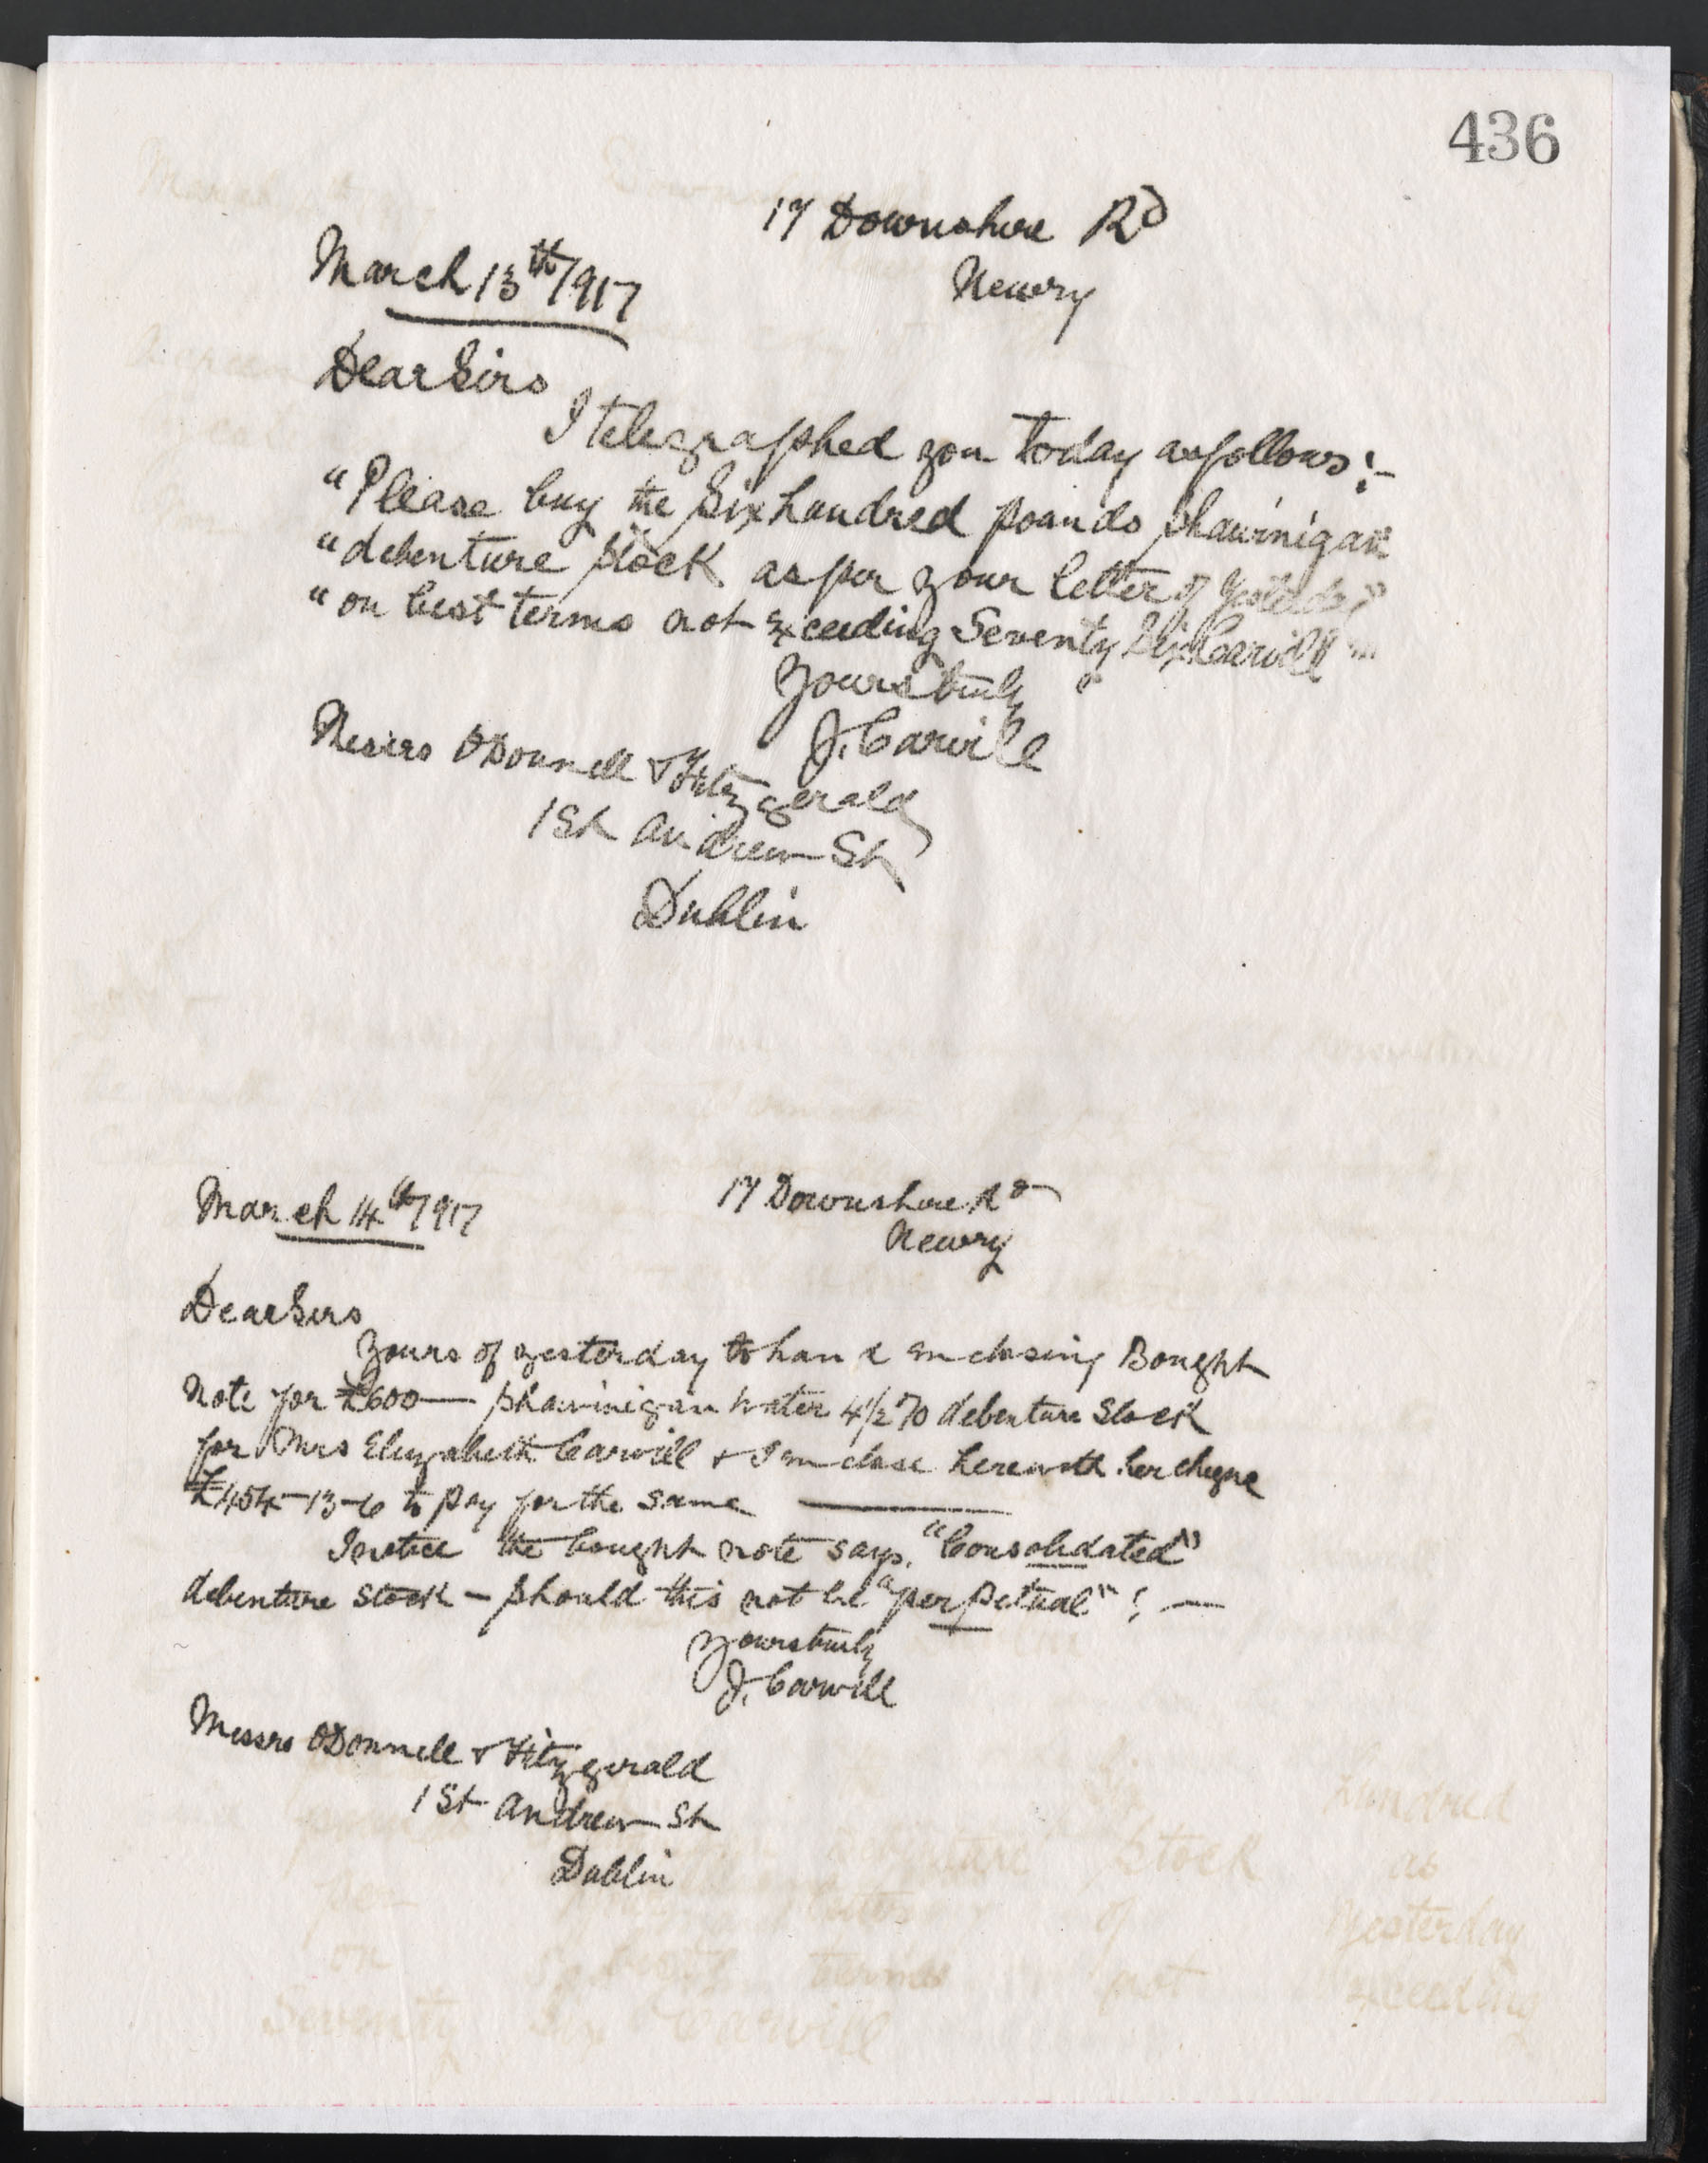 436
17 Downshire Rd
Newry
March 13th/917
Dear Sirs
I telegraphed you today as follows:-
"Please buy the Six hundred pounds Shawinigan
"debenture stock as per your letter of yesterday
"on best terms not exceeding Seventy Six Carvill"
Yours truly
J. Carvill
Messrs O'Donnell & Fitzgerald
1 St Andrew St
Dublin
March 14th/917
17 Downshire Rd
Newry
Dear Sirs
Yours of yesterday to hand enclosing Bought
Note for £600— Shawinigan Water 4½% debenture Stock
for Mrs Elizabeth Carvill & I enclose herewith her cheque
£454-13-6 to pay for the same —
I notice the bought note says "Consolidated"
debenture stock — should this not be "perpetual"? —
Yours truly
J. Carvill
Messrs O'Donnell & Fitzgerald
1 St Andrew St
Dublin
hundred
stock as
letter of yesterday
on best terms not exceeding
Seventy Six Carvill